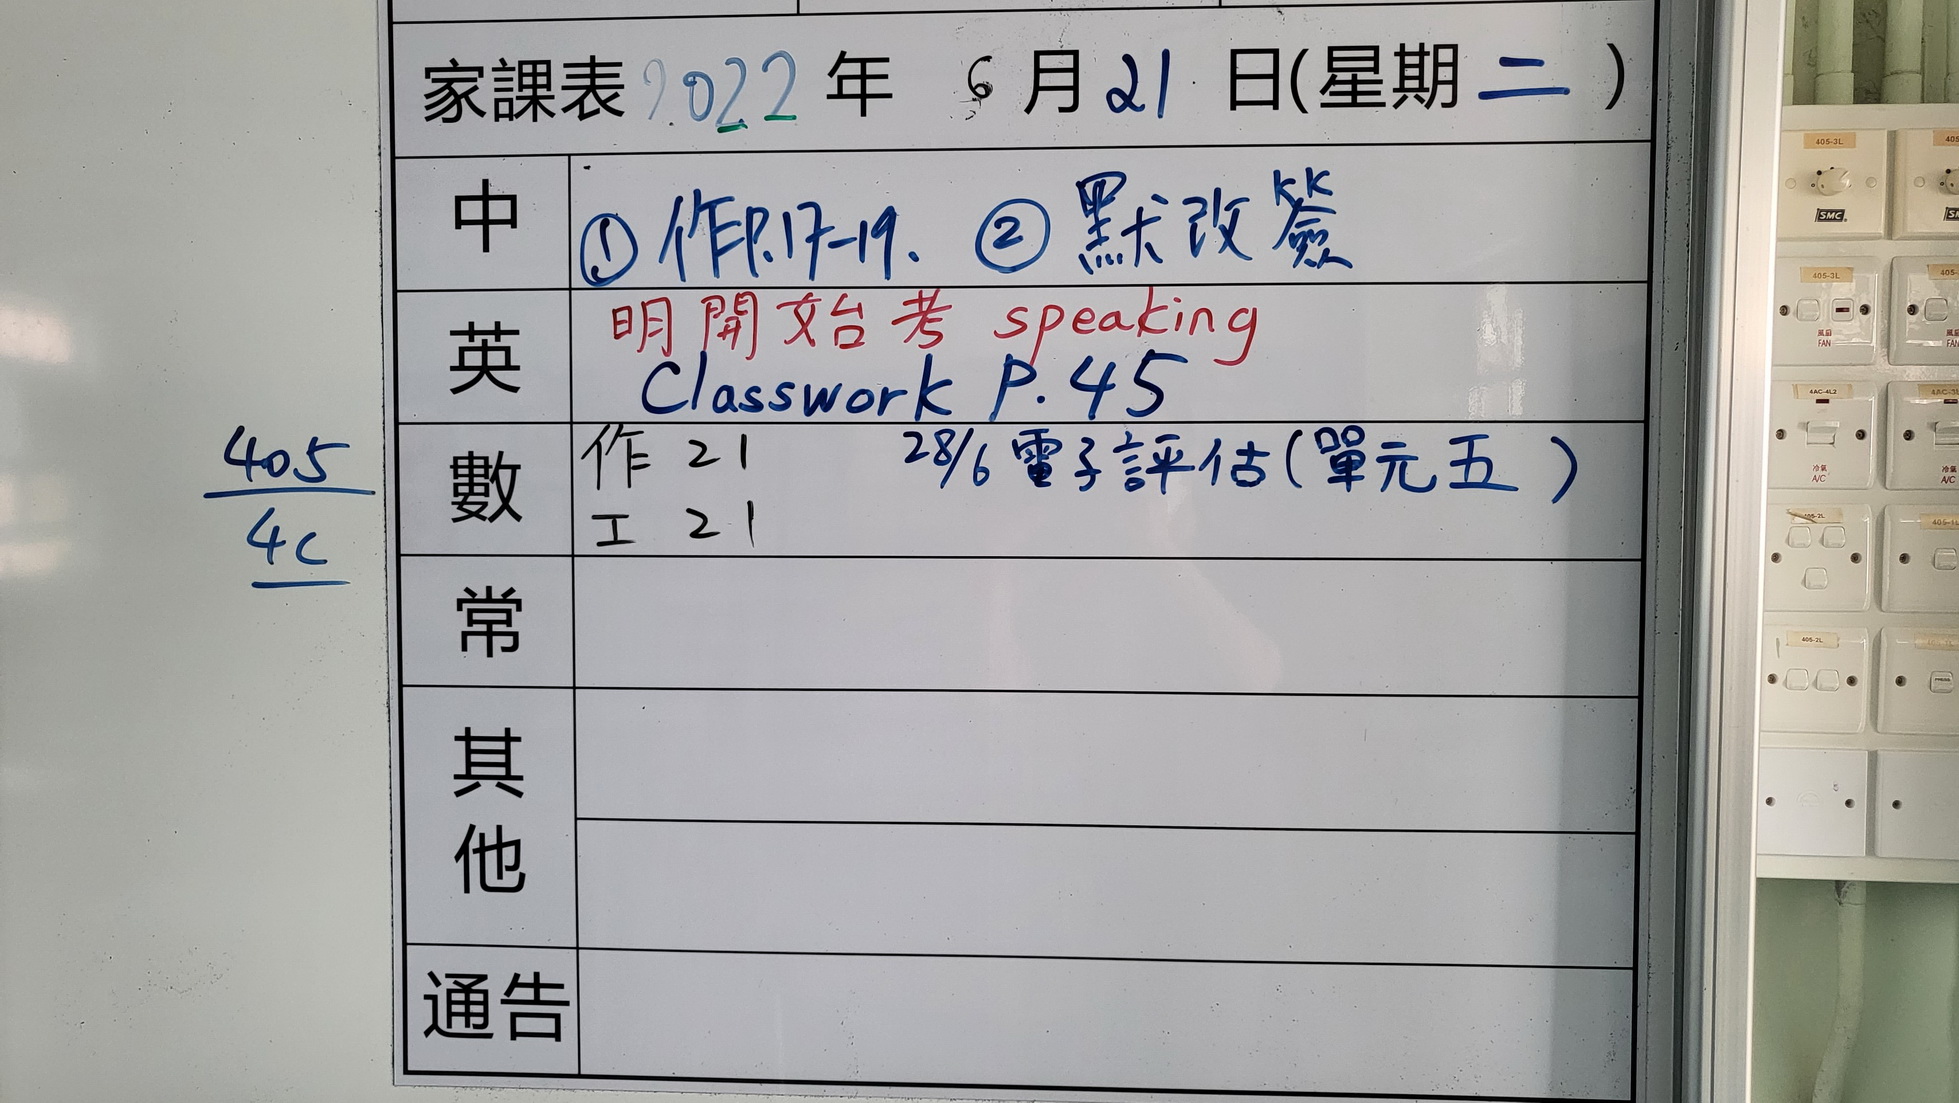 家課表 2022 年 6 月 21 日(星期 二 )
中
① 作P.17-19. ② 默改簽
英
明開始考 speaking
Classwork P.45
數
作 21 28/6 電子評估(單元五 )
工 21
常
其他
通告
405
4C
405-3L
SMC
405-3L
風扇
FAN
4AC-4L2
冷氣
A/C
405-2L
405-2L
冷氣
A/C